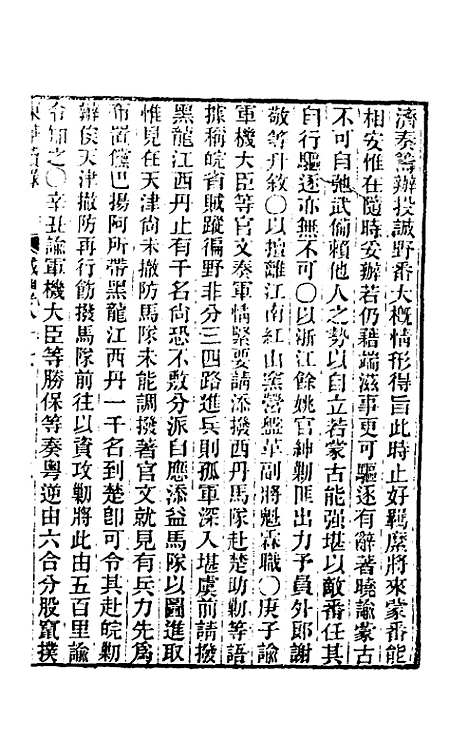 濟奏籌辦投誠野番大概情形得旨此時止好羈縻將來蒙番能
相安惟在隨時妥辦若仍藉端滋事更可驅逐有辭著曉諭蒙古
不可自弛武備賴他人之勢以自立若蒙古能强堪以敵番任其
自行驅逐亦無不可○以浙江餘姚官紳勦匪出力予員外郎謝
敬等升敘○以擅離江南紅山窰營盤革副將魁霖職○庚子諭
軍機大臣等官文奏軍情緊要請添撥西丹馬隊赴楚助勦等語
據稱皖省賊蹤徧野非分三四路進兵則孤軍深入堪虞前請撥
黑龍江西丹止有千名尚恐不敷分派自應添益馬隊以圖進取
惟現在天津尚未撤防馬隊未能調撥著官文就見有兵力先爲
布置儻巴揚阿所帶黑龍江西丹一千名到楚卽可令其赴皖勦
辦俟天津撤防再行飭撥馬隊前往以資攻勦將此由五百里諭
令知之○辛丑諭軍機大臣等勝保等奏粵逆由六合分股竄撲